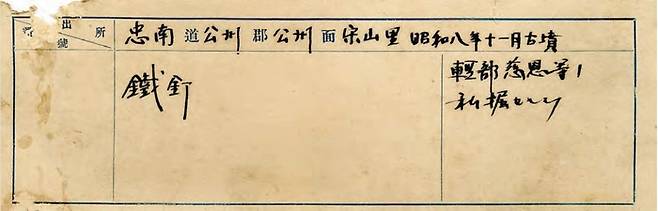 出 所
號
忠南 道 公州 郡 公州 面 宋山里 昭和八年十一月古墳
鐵釘
輕部慈恩等ノ
私掘